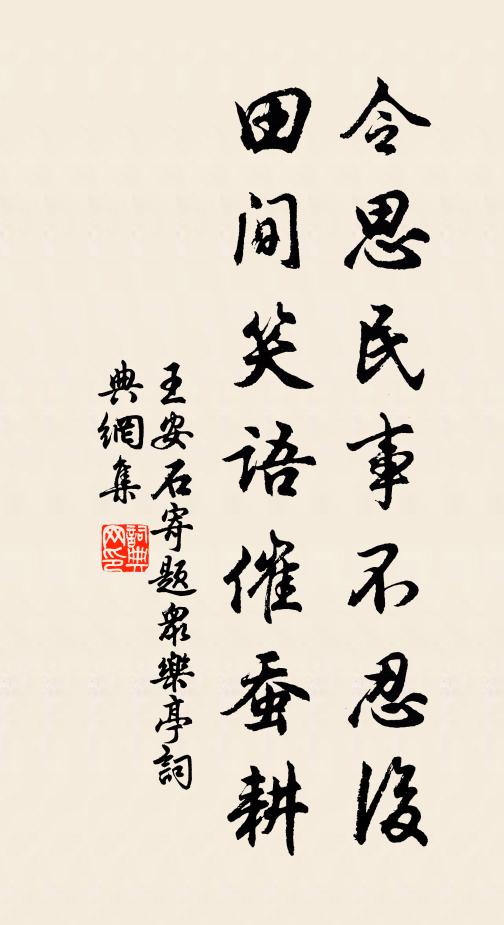 令思民事不忍後
田間笑語催蚕耕
王安石寄題眾樂亭詞
典網集
詞典
网印